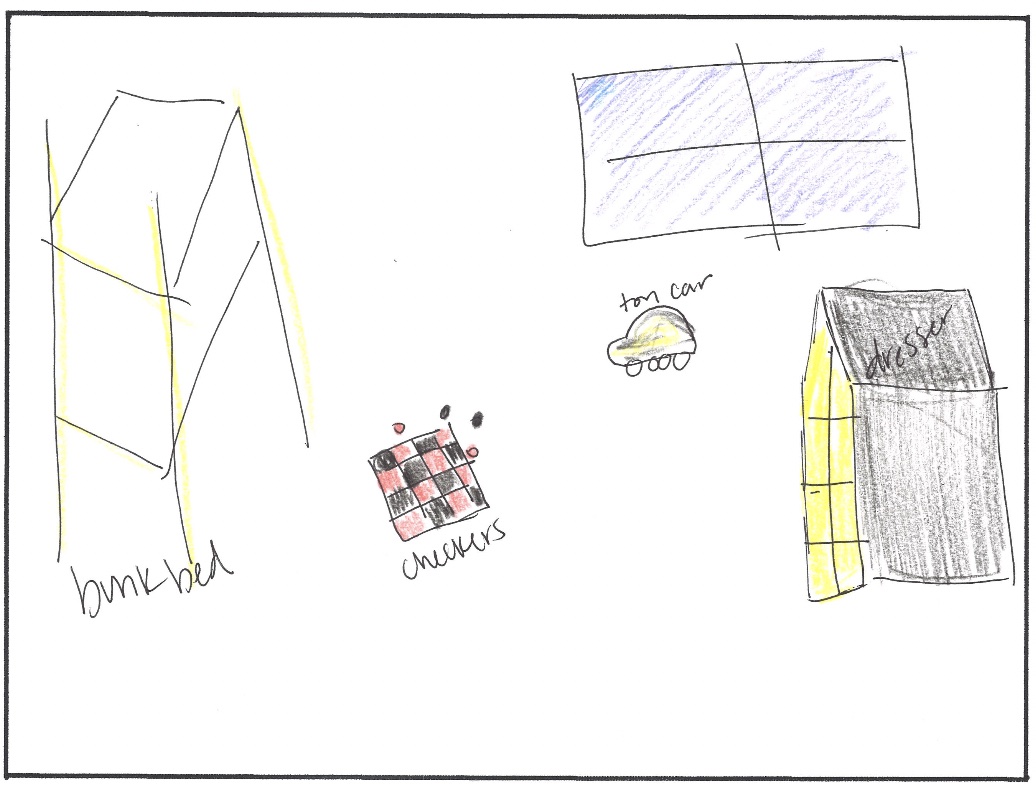 toy car
dresser
checkers
bunk bed